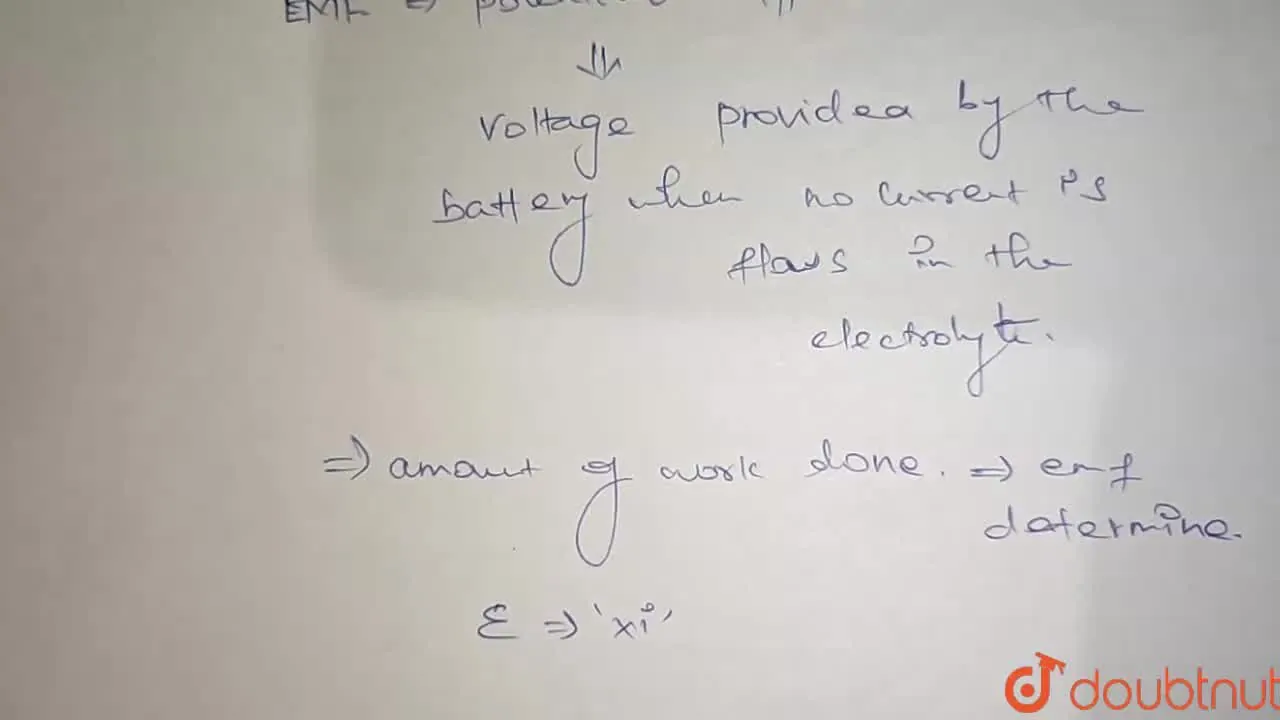 EMF ⇒
⇓
voltage provided by the
battery when no current is
flows in the
electrolyte.
⇒ amount of work done. ⇒ emf
determine.
ε ⇒ 'xi'
doubtnut